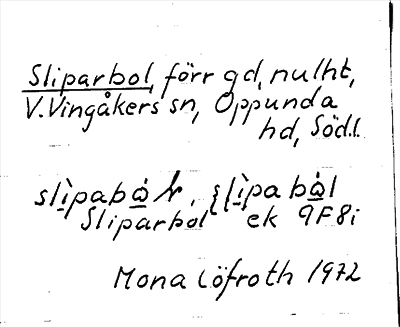 Sliparbol, förr gd, nulht,
V. Vingåkers sn, Oppunda
hd, Södl.
slìpabå̱ , slìpabå̱l
Sliparbol ek 9F8i
Mona Löfroth 1972